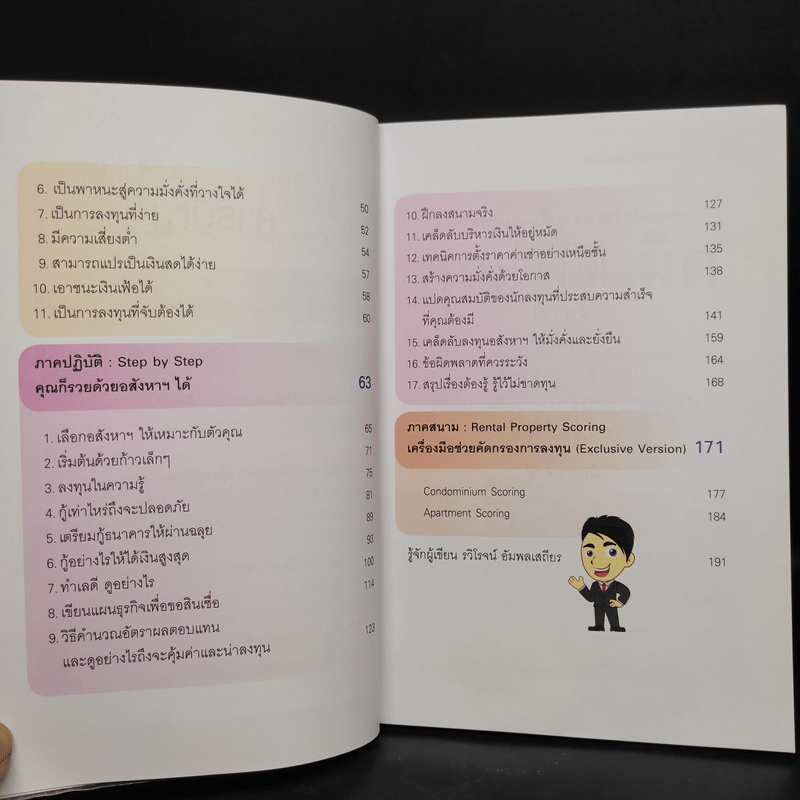 6. เป็นพาหนะสู่ความมั่งคั่งที่วางใจได้ 50
7. เป็นการลงทุนที่ง่าย 52
8. มีความเสี่ยงต่ำ 54
9. สามารถแปรเป็นเงินสดได้ง่าย 57
10. เอาชนะเงินเฟ้อได้ 58
11. เป็นการลงทุนที่จับต้องได้ 60
ภาคปฏิบัติ : Step by Step
คุณก็รวยด้วยอสังหาฯ ได้ 63
1. เลือกอสังหาฯ ให้เหมาะกับตัวคุณ 65
2. เริ่มต้นด้วยก้าวเล็กๆ 71
3. ลงทุนในความรู้ 75
4. กู้เท่าไหร่ถึงจะปลอดภัย 81
5. เตรียมกู้ธนาคารให้ผ่านฉลุย 89
6. กู้อย่างไรให้ได้เงินสูงสุด 93
7. ทำเลดี ดูอย่างไร 100
8. เขียนแผนธุรกิจเพื่อขอสินเชื่อ 114
9. วิธีคำนวณอัตราผลตอบแทน
และดูอย่างไรถึงจะคุ้มค่าและน่าลงทุน 123
10. ฝึกลงสนามจริง 127
11. เคล็ดลับบริหารเงินให้อยู่หมัด 131
12. เทคนิคการตั้งราคาค่าเช่าอย่างเหนือชั้น 135
13. สร้างความมั่งคั่งด้วยโอกาส 138
14. แปดคุณสมบัติของนักลงทุนที่ประสบความสำเร็จ
ที่คุณต้องมี 141
15. เคล็ดลับลงทุนอสังหาฯ ให้มั่งคั่งและยั่งยืน 159
16. ข้อผิดพลาดที่ควรระวัง 164
17. สรุปเรื่องต้องรู้ รู้ไว้ไม่ขาดทุน 168
ภาคสนาม : Rental Property Scoring
เครื่องมือช่วยคัดกรองการลงทุน (Exclusive Version) 171
Condominium Scoring 177
Apartment Scoring 184
รู้จักผู้เขียน รวิโรจน์ อัมพลเสถียร 191